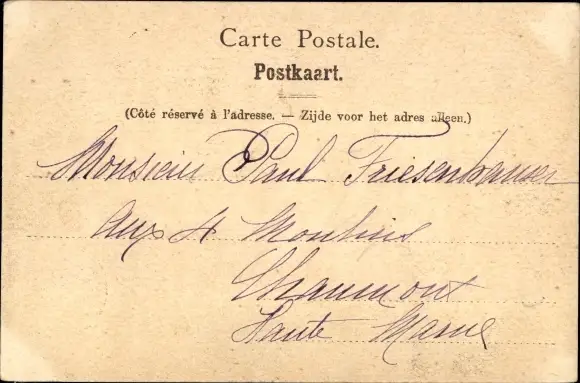 Carte Postale.
Postkaart.
(Côté réservé à l'adresse. — Zijde voor het adres alleen.)
Monsieur Paul Friesenhauser
Aux 4 Moulins
Chaumont
Haute Marne